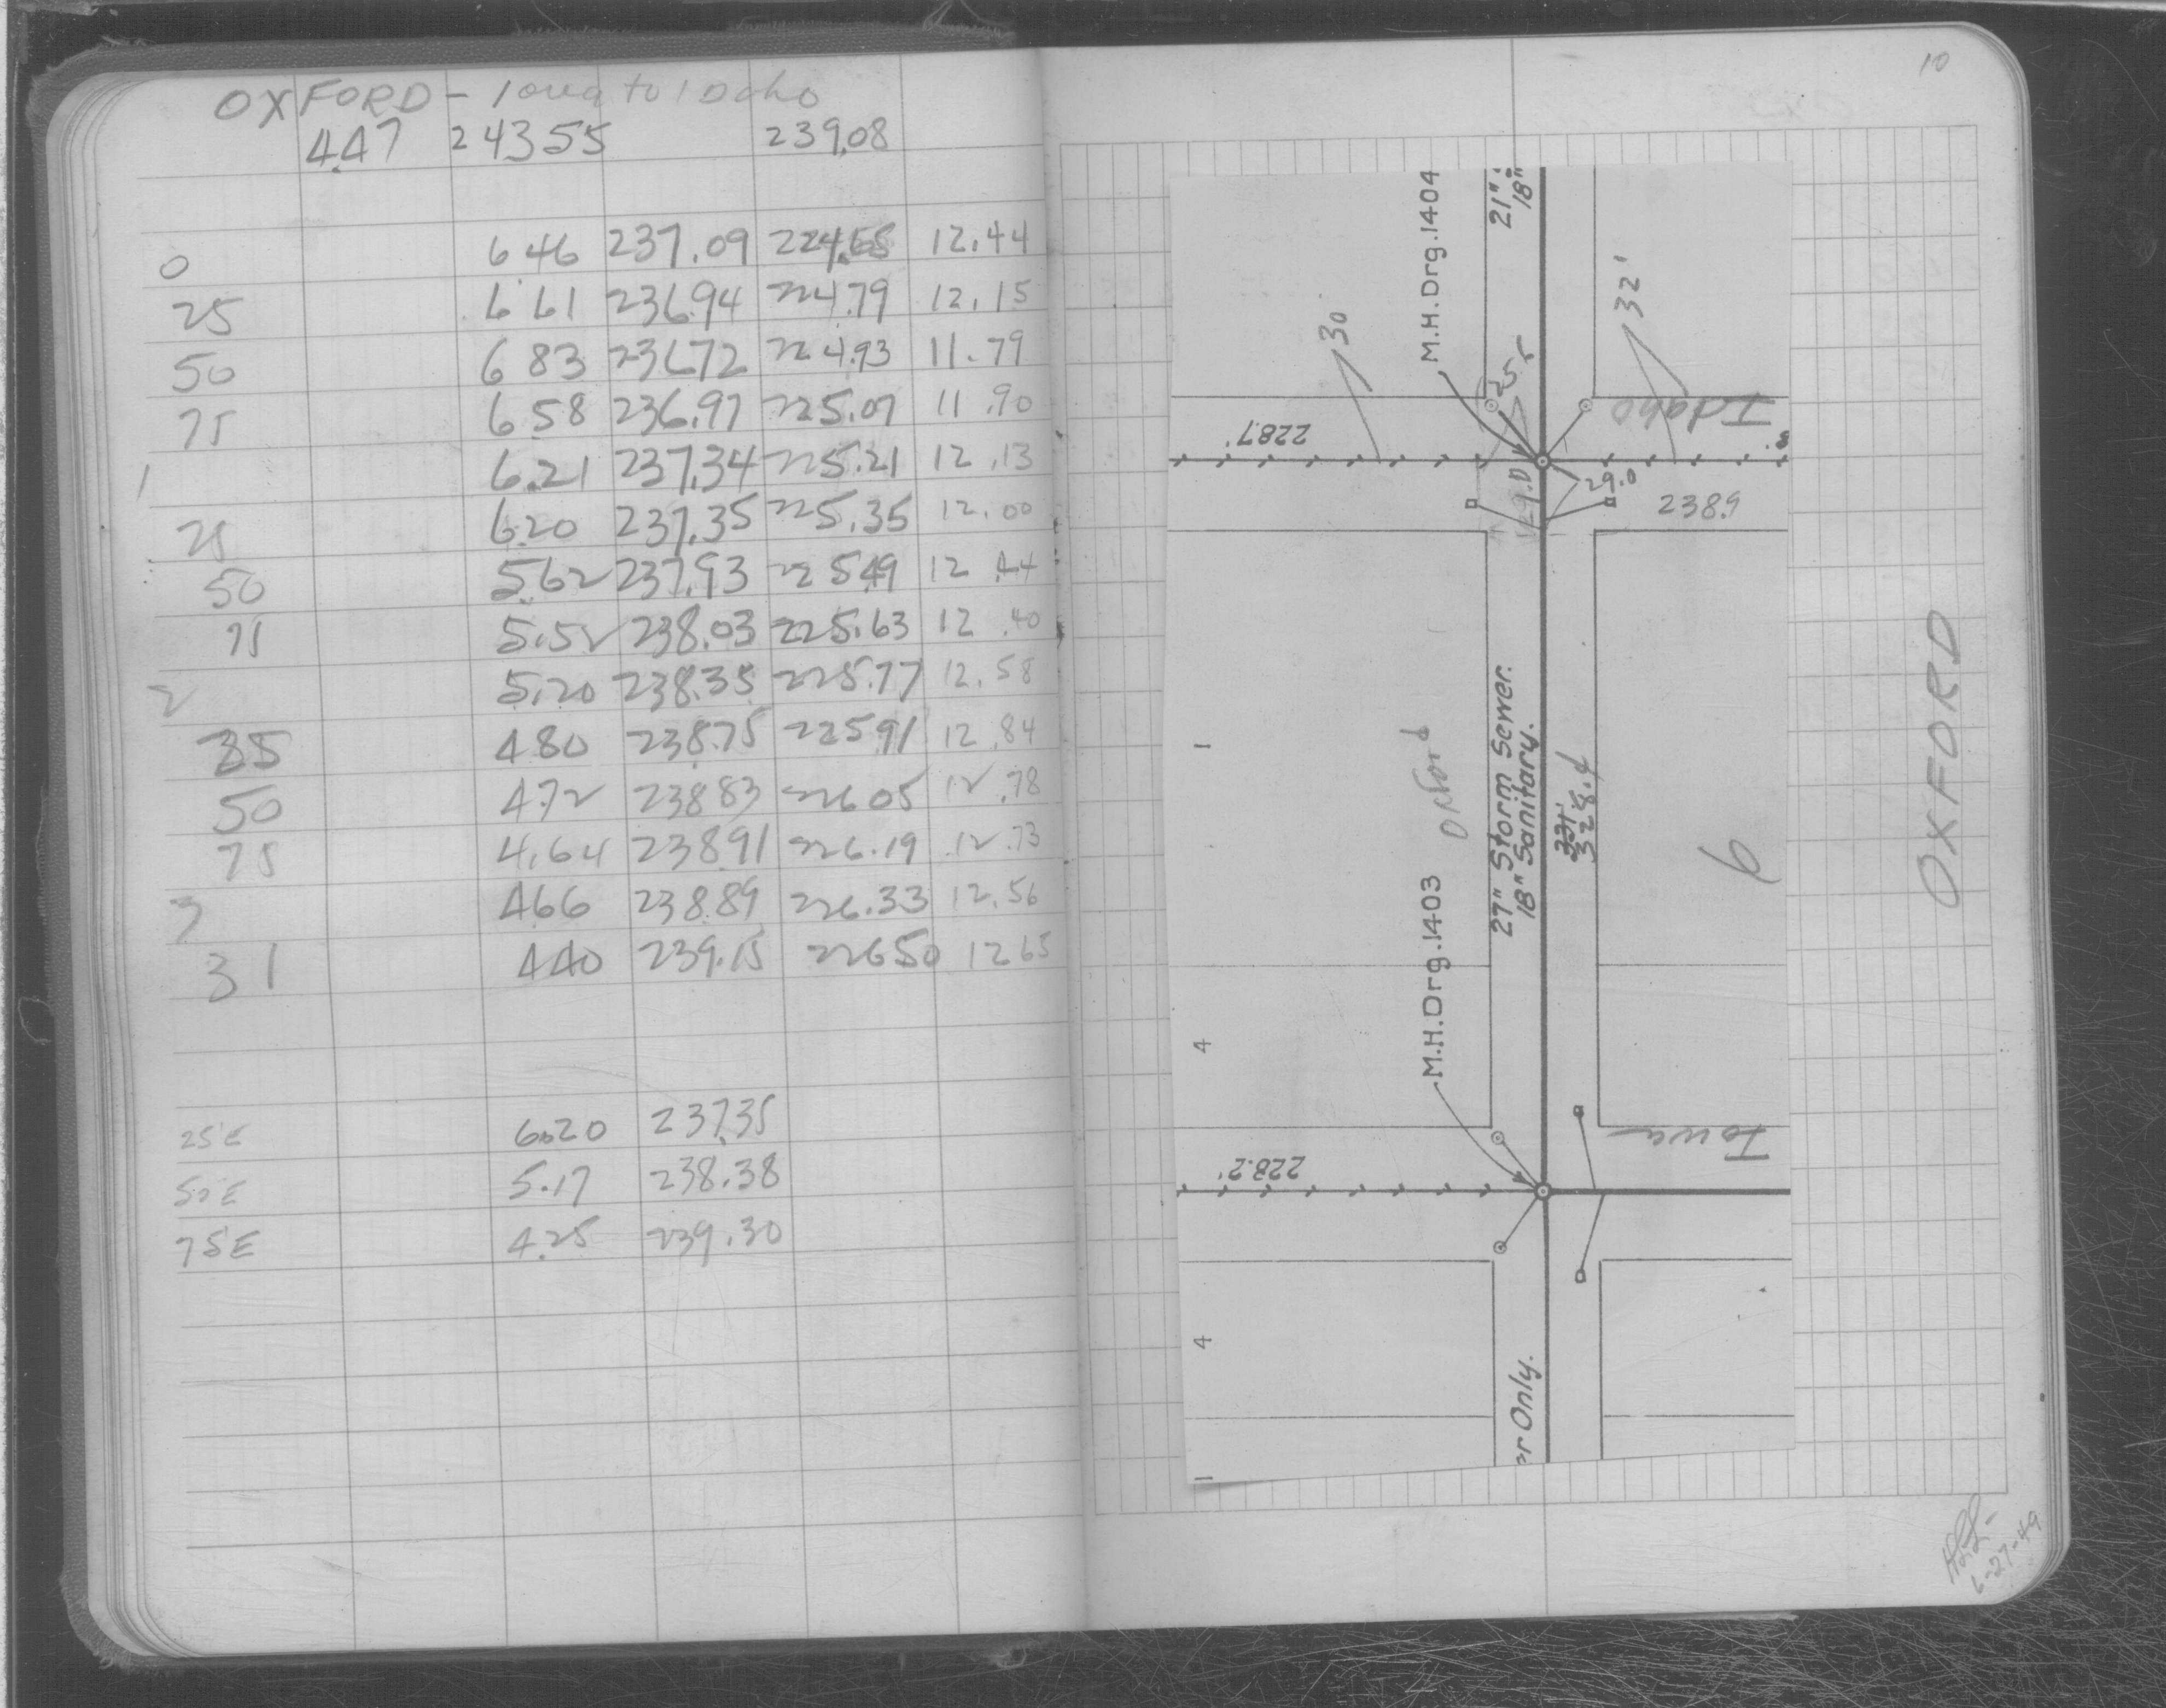 OXFORD - Iowa to Idaho
4.47 243.55 239.08
0 6.46 237.09 224.65 12.44
25 6.61 236.94 224.79 12.15
50 6.83 236.72 224.93 11.79
75 6.58 236.97 225.07 11.90
1 6.21 237.34 225.21 12.13
25 6.20 237.35 225.35 12.00
50 5.62 237.93 225.49 12.44
75 5.52 238.03 225.63 12.40
2 5.20 238.35 225.77 12.58
25 4.80 238.75 225.91 12.84
50 4.72 238.83 226.05 12.78
75 4.64 238.91 226.19 12.73
3 4.66 238.89 226.33 12.56
31 4.40 239.15 226.50 12.65
25E 6.20 237.35
50E 5.17 238.38
75E 4.25 239.30
10
M.H. Drg. 1404
21"
18"
30
32'
25.5
228.7'
Idaho
29.0
29.0
238.9
1
Oxford
27" Storm Sewer.
18" Sanitary.
331'
328.4
6
OXFORD
M.H. Drg. 1403
4
228.2'
Iowa
4
er Only.
1
6-27-49